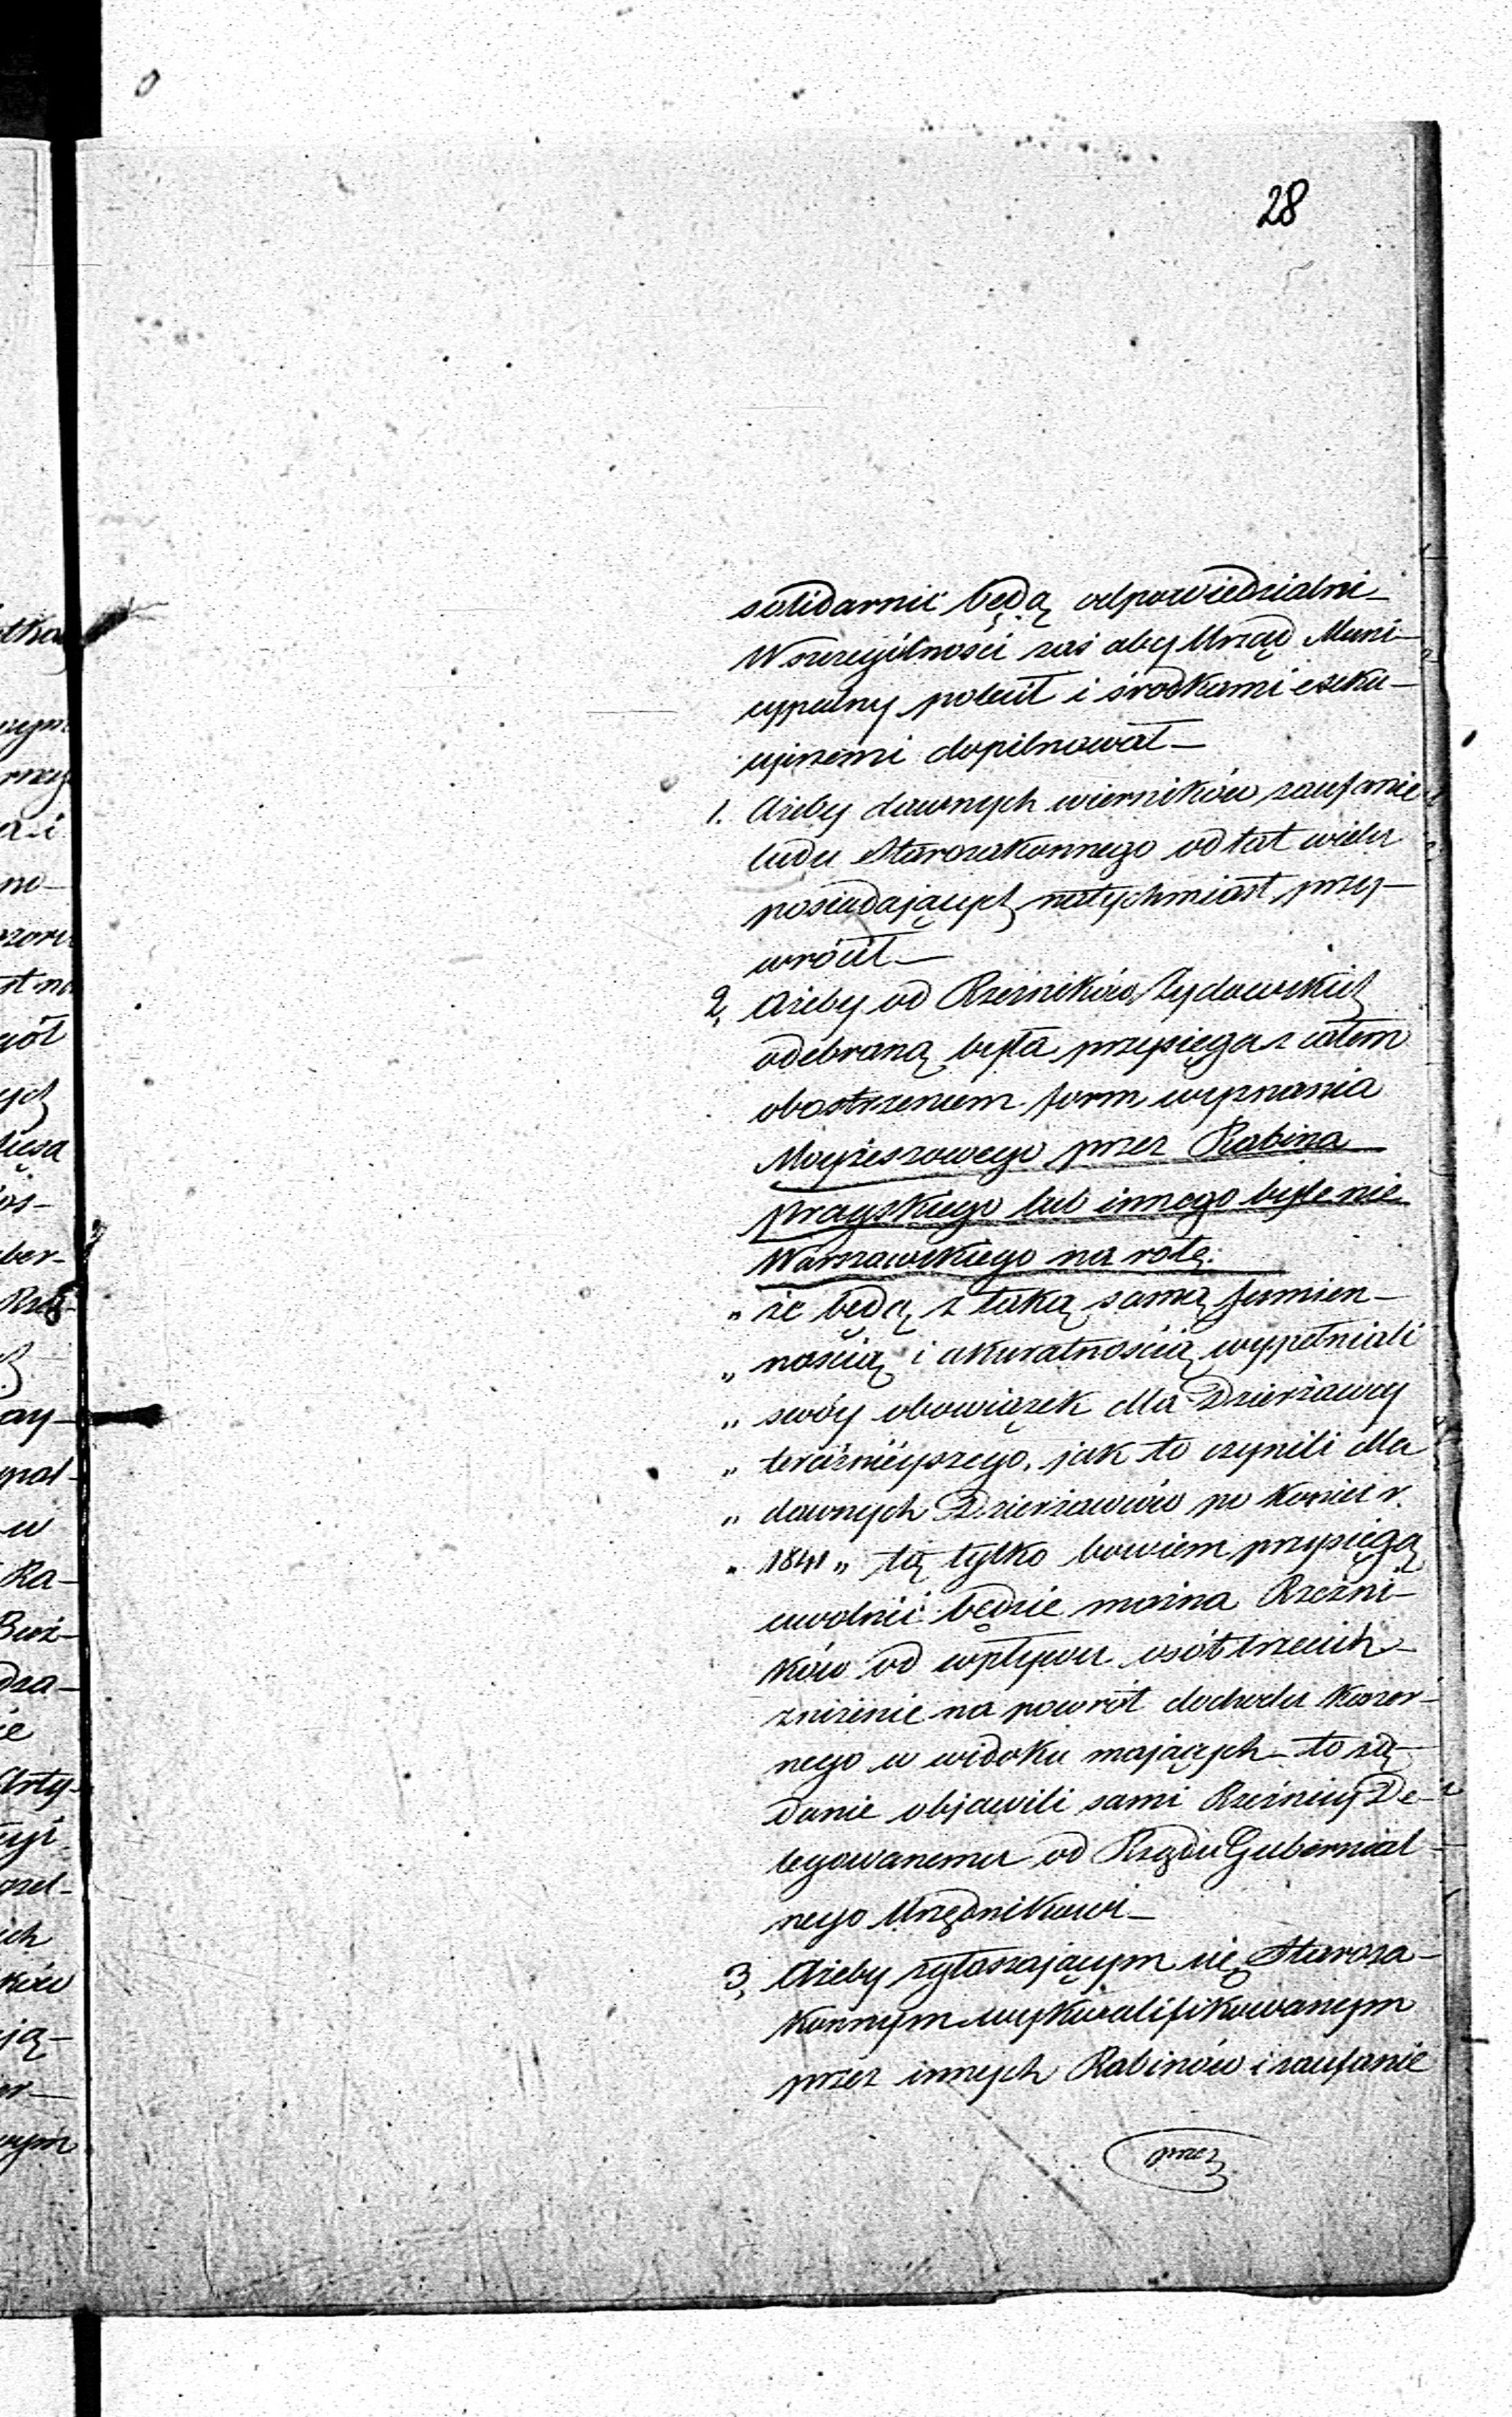 28
solidarnie będą odpowiedzialni_
W szczególności zaś aby Urząd Muni-
cypalny polecił i środkami exeku-
cyjnemi dopilnował_
1. Ażeby dawnych wierników zaufanie
ludu Starozakonnego od lat wielu
posiadających natychmiast przy-
wrócił_
2, Ażeby od Rzeźników Żydowskich
odebraną była przysięga z całem
obostrzeniem form wyznania
Moyżeszowego przez Rabina
pragskiego lub innego byle nie
Warszawskiego na rotę:
„ że będą z taką samą sumien-
„ nością i akuratnością wypełniali
„ swóy obowiązek dla Dzierżawcy
„ teraźnieyszego, jak to czynili dla
„ dawnych Dzierżawców po koniec r.
„ 1841 „ tą tylko bowiem przysięgą
uwolnić będzie można Rzeźni-
ków od wpływu osób trzecich_
zniżenie na powrót dochodu koszer-
nego w widoku mających_ to żą-
danie objawili sami Rzeźnicy De-
legowanemu od Rządu Gubernial-
nego Urzędnikowi_
3, Ażeby zgłaszającym się Staroza-
konnym wykwalifikowanym
przez innych Rabinów i zaufanie
przez